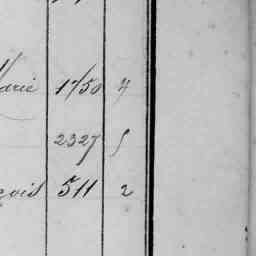 Marie 1750 7
2327 5
çois 511 2